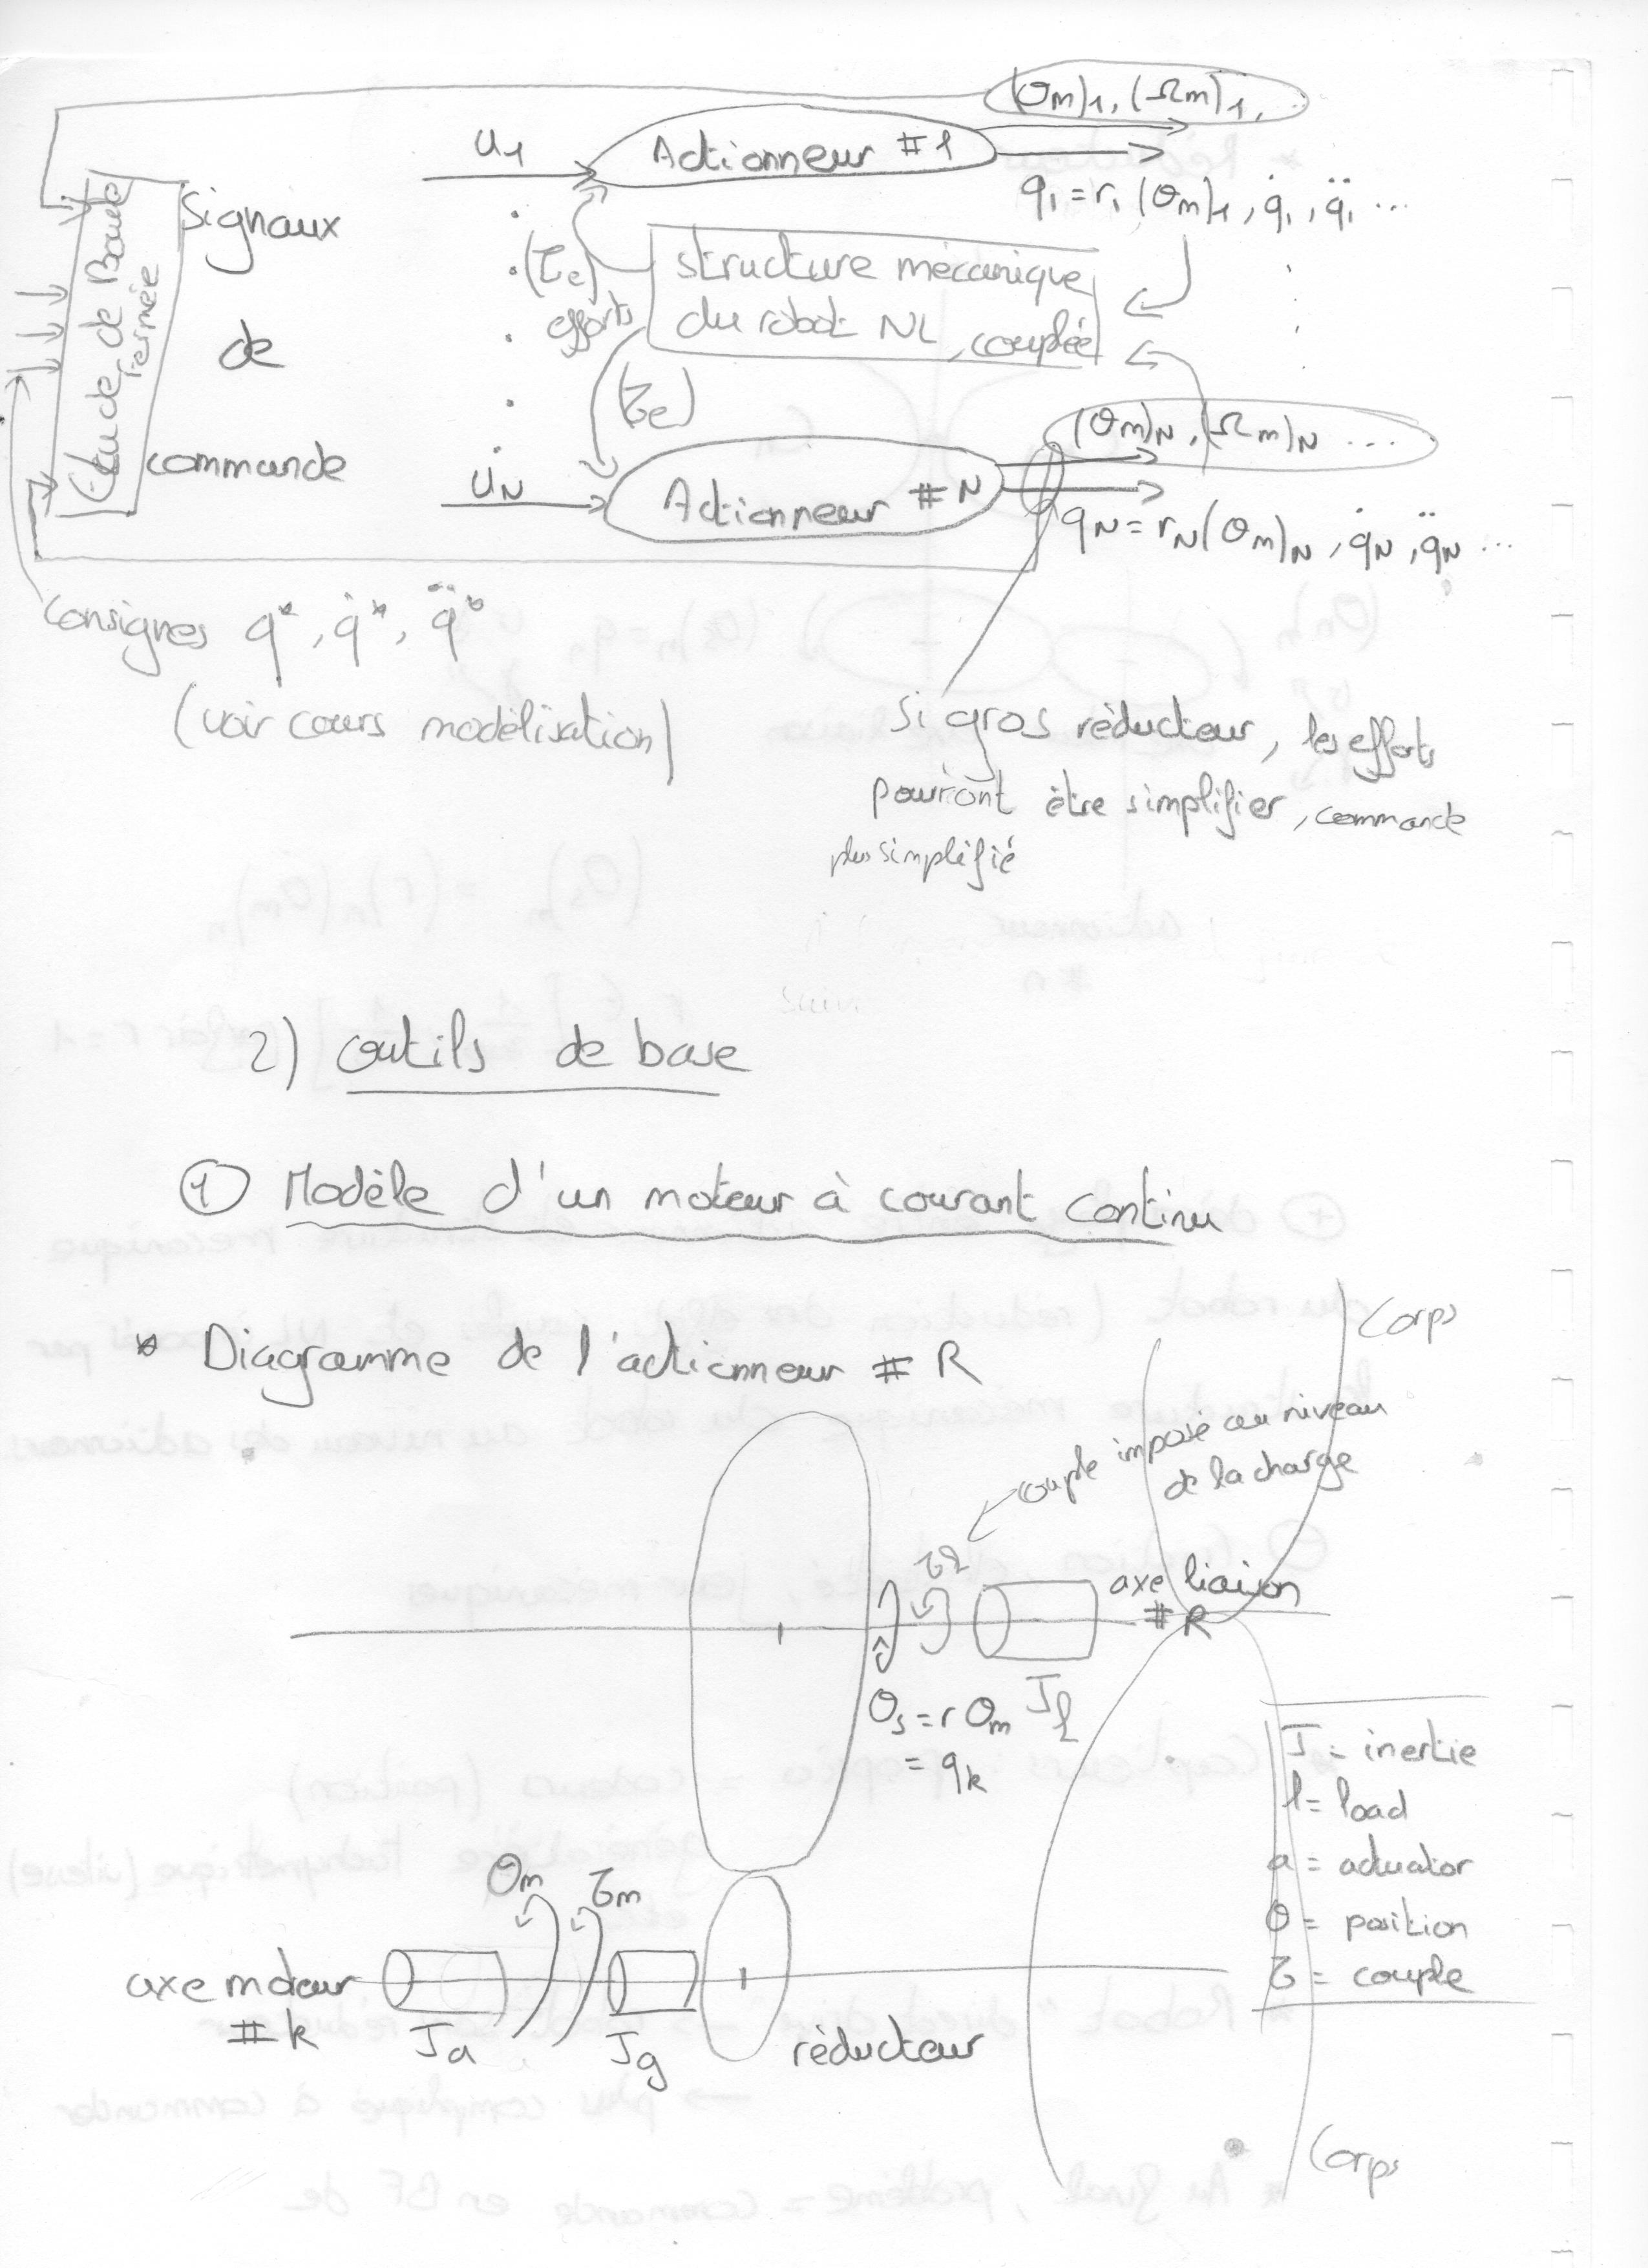 (θm)1, (Ωm)1, ...
u1
Actionneur #1
q1 = r1 (θm)1, q̇1, q̈1 ...
Signaux
de
commande
Etude de Boucle
fermée
(τe)
efforts
structure mécanique
du robot NL, couplée
(τe)
(θm)N, (Ωm)N ...
uN
Actionneur #N
qN = rN (θm)N, q̇N, q̈N ...
Consignes q*, q̇*, q̈*
(voir cours modélisation)
Si gros réducteur, les efforts
pourront être simplifier, commande
plus simplifié
2) outils de base
① Modèle d'un moteur à courant continu
* Diagramme de l'actionneur #R
Corps
couple imposé au niveau
de la charge
τl
axe liaison
#R
θs = r θm
= qk
Jl
J = inertie
l = load
a = actuator
θ = position
τ = couple
θm
τm
axe moteur
#k
Ja
Jg
réducteur
Corps